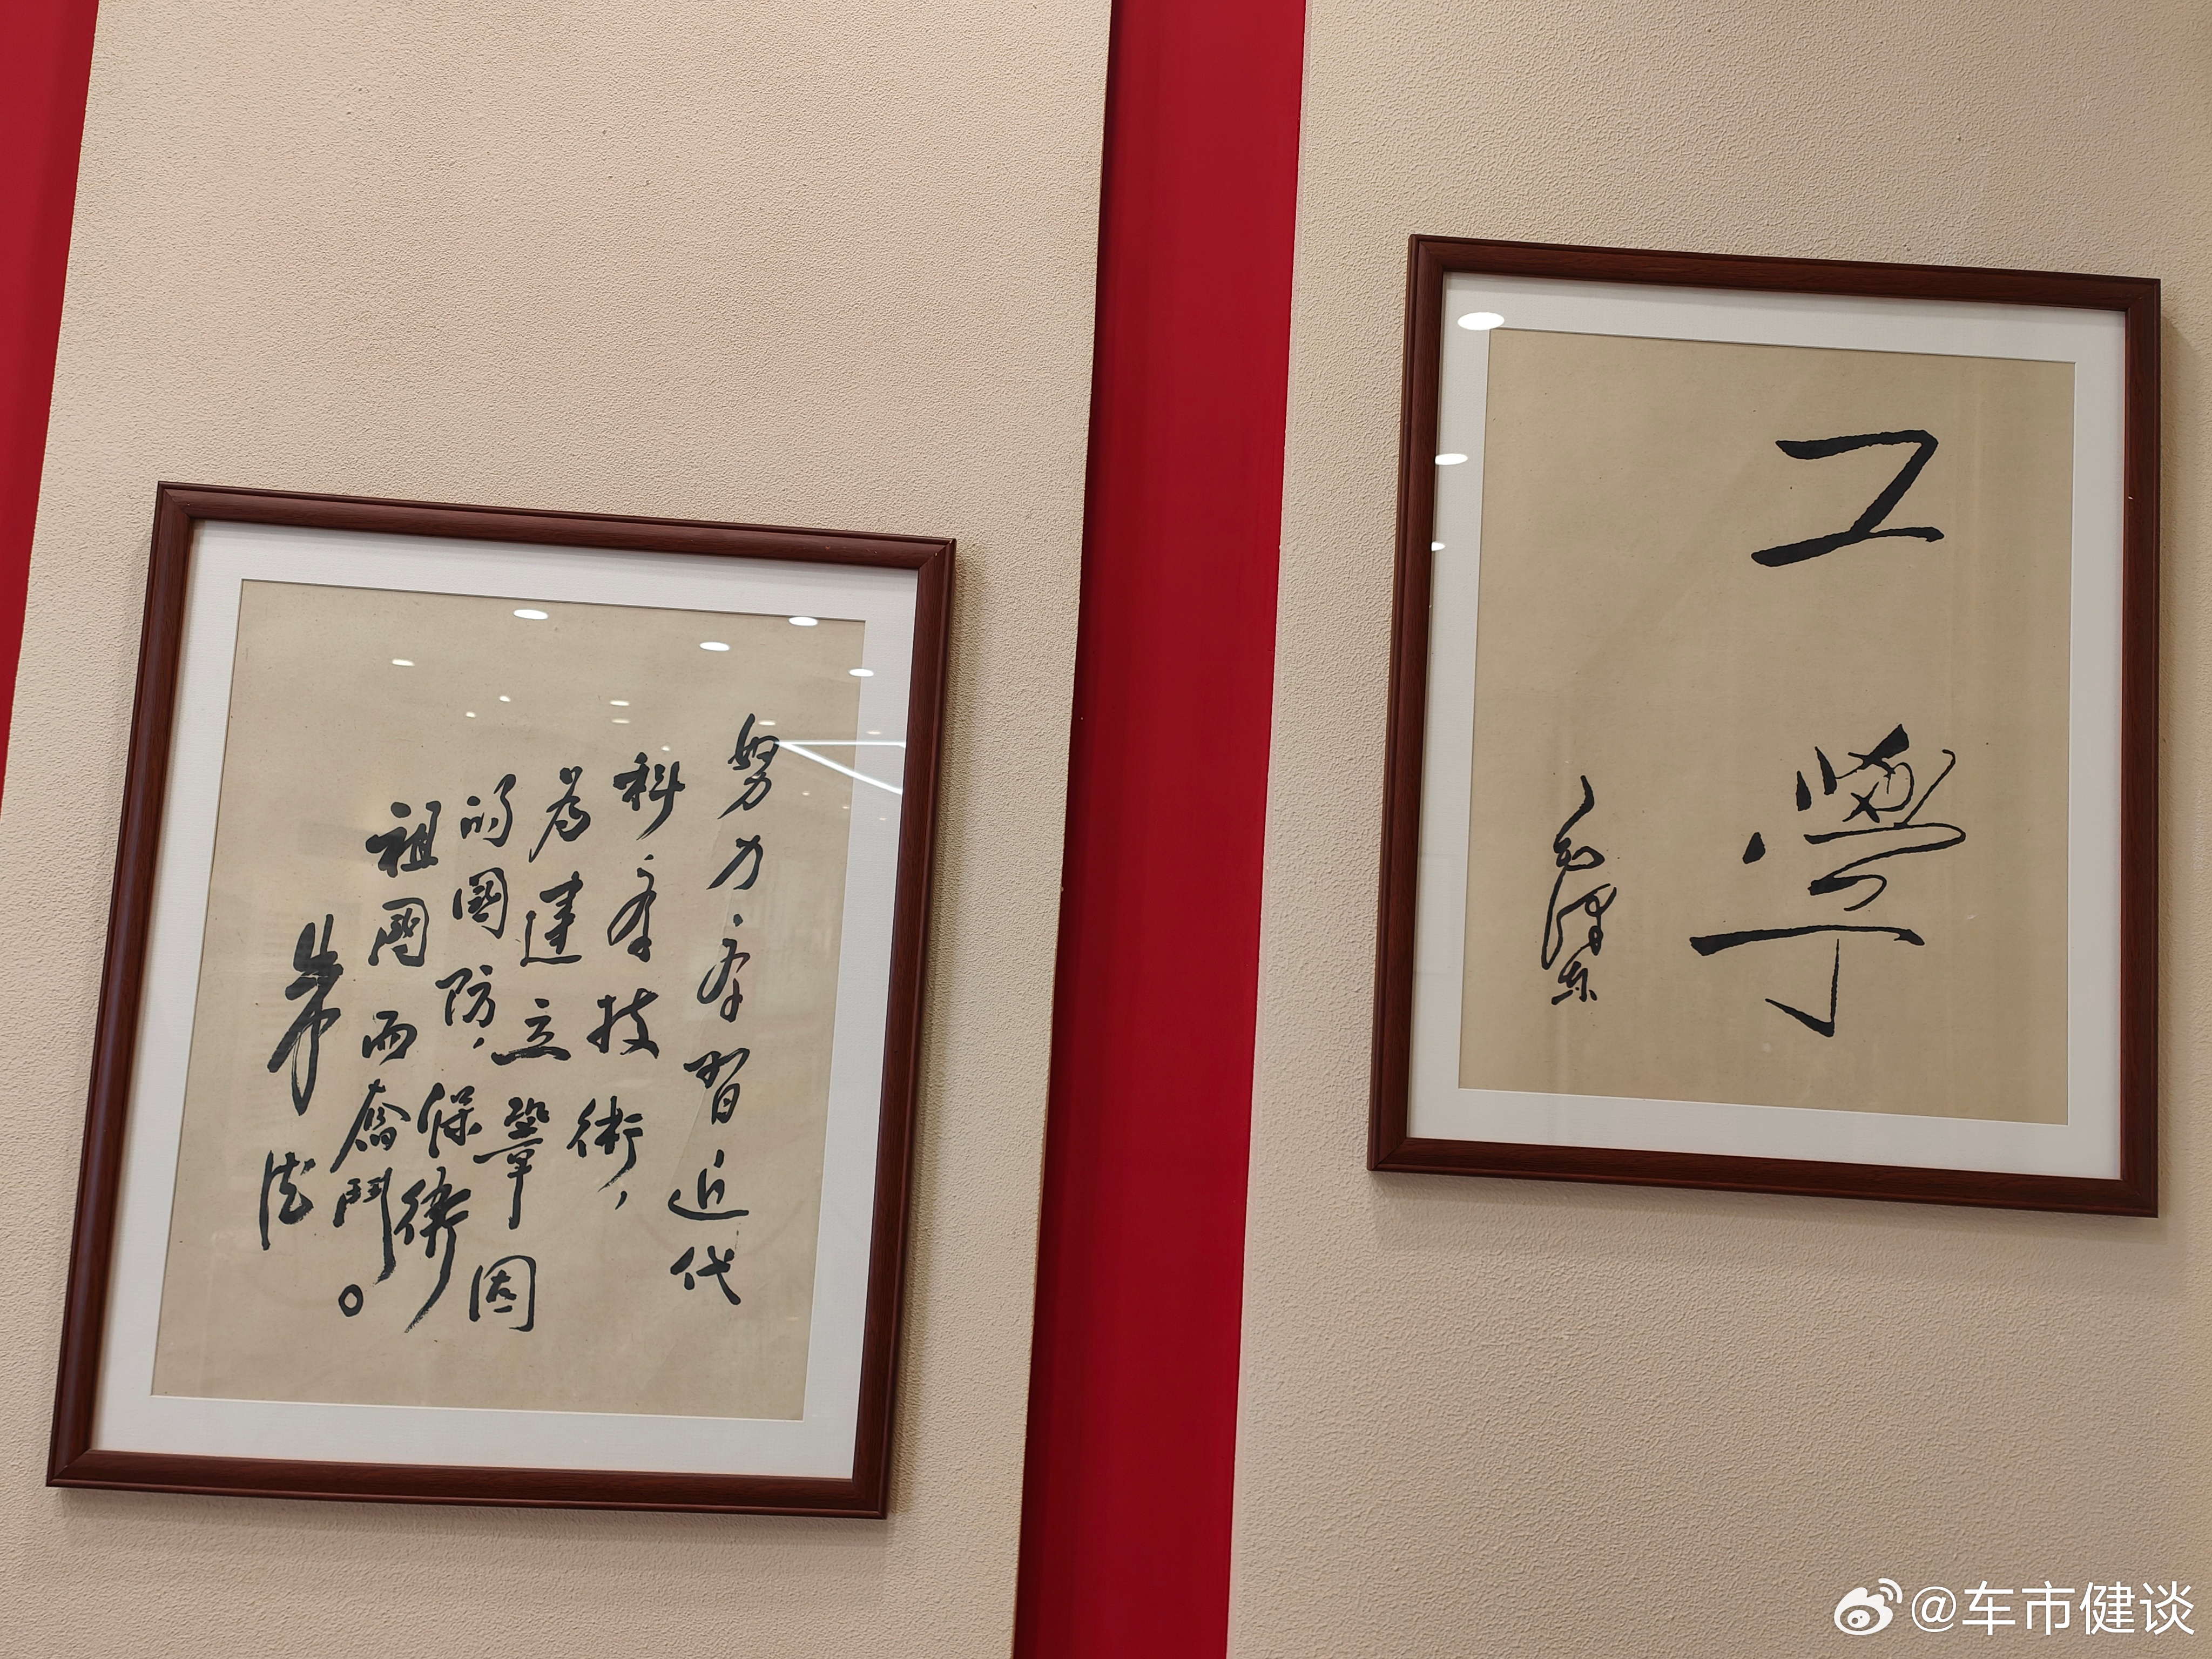 努力學習近代
科學技術，
為建立鞏固
的國防，保衛
祖國而奮鬥。
朱德
工學
毛澤東
@车市健谈